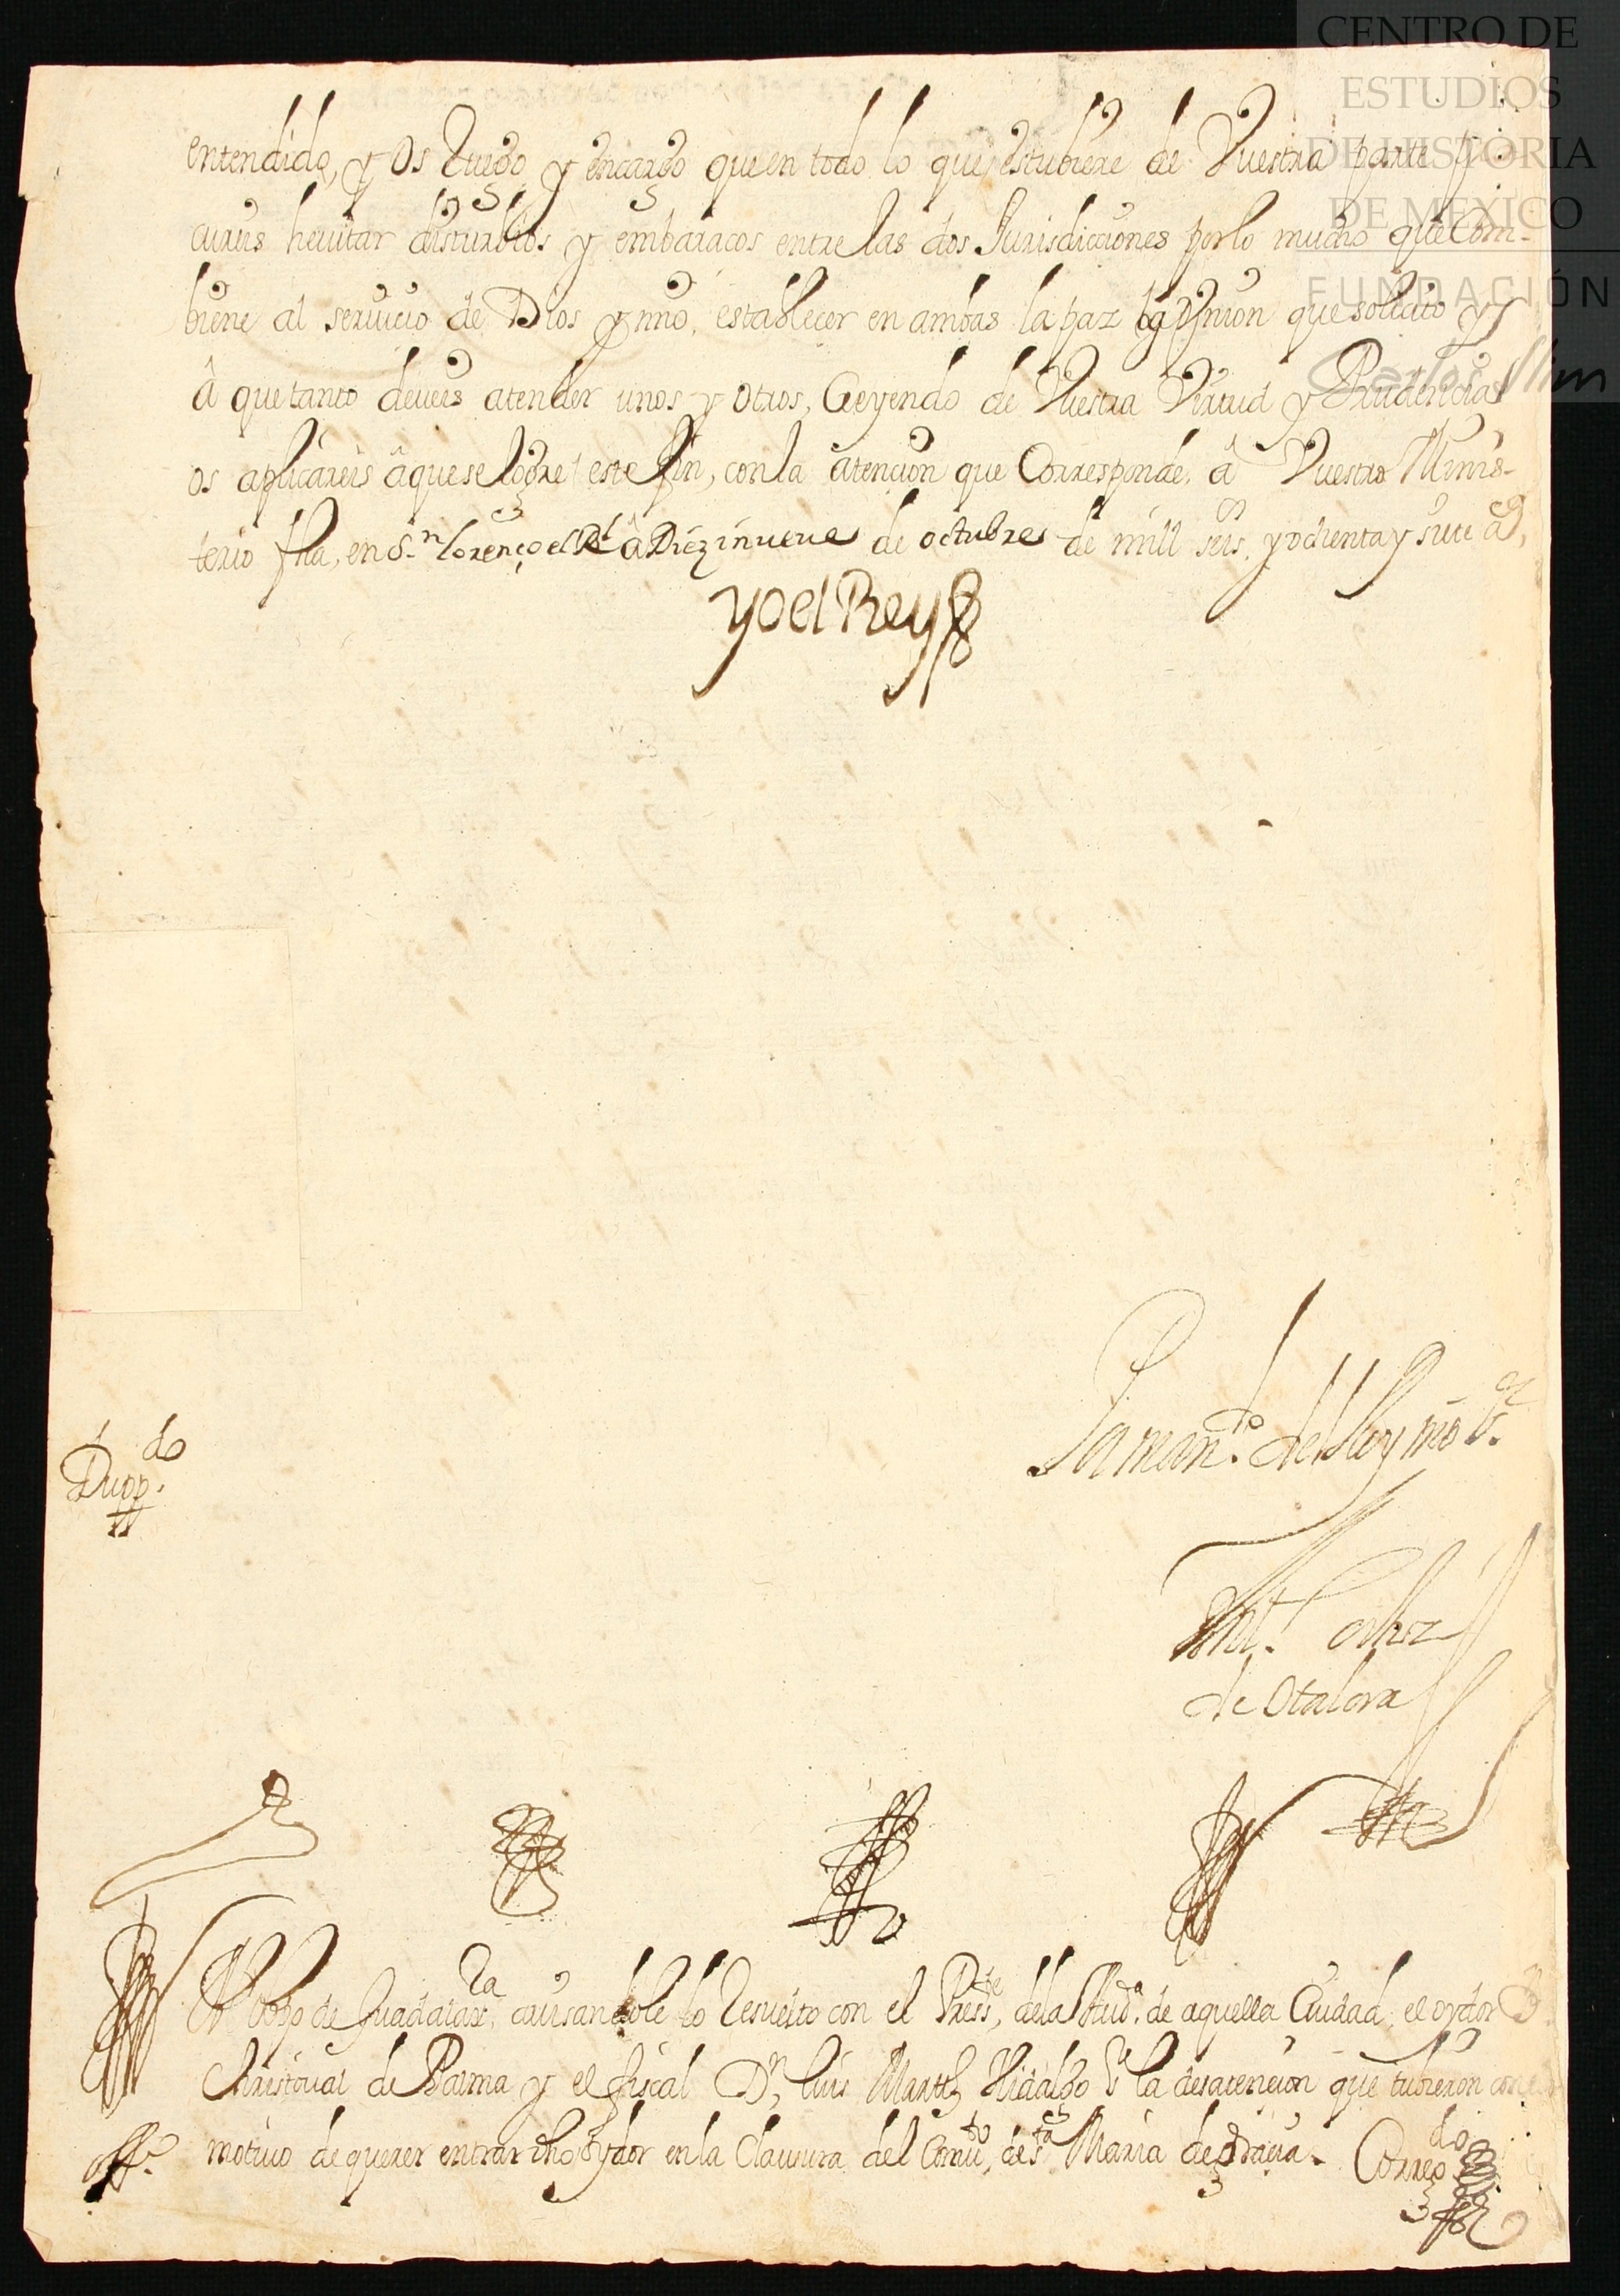 CENTRO DE
ESTUDIOS
DE HISTORIA
DE MEXICO
FUNDACIÓN
Carlos Slim
entendido, y os Ruego y encargo que en todo lo que estubiere de Vuestra parte
heuitar disturbios y embaracos entre las dos Jurisdicciones por lo mucho que Com-
biene al seruicio de Dios y mio, establecer en ambas la paz y Vnion que solicito y
â que tanto deueis atender unos y otros, Creyendo de Vuestra Virtud y Prudencia
os aplicareis â que se logre este fin, con la atencion que Corresponde, â Vuestro Minis-
terio fha, en S.n Lorenço el Rl â Diez inueue de octubre de mill seis. y ochenta y siete as,
yo el Rey
Por man.do del Rey nro S.r
Ant.o Ortiz
de Otalora
Dupp.do
Al Obpo de Guadalaxra auisandole lo Resuelto con el Press.te de la Aud.a de aquella Ciudad, el oydor D.
Christoual de Palma y el fiscal D.n Luis Martz Hidalgo Pr la desatencion que tubieron con el
motiuo de querer entrar dho Oydor en la Clausura del Conu.to de S.ta Maria de Gracia. Correg.do
off.o